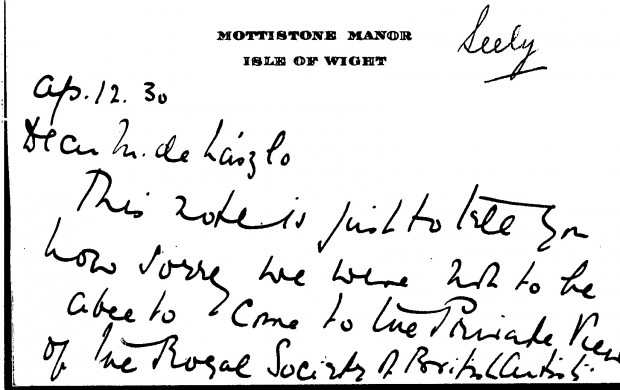 MOTTISTONE MANOR
ISLE OF WIGHT
Seely
Ap. 12. 30
Dear Mr. de László
This note is just to tell you
how sorry we were not to be
able to come to the Private View
of the Royal Society of British Artists.